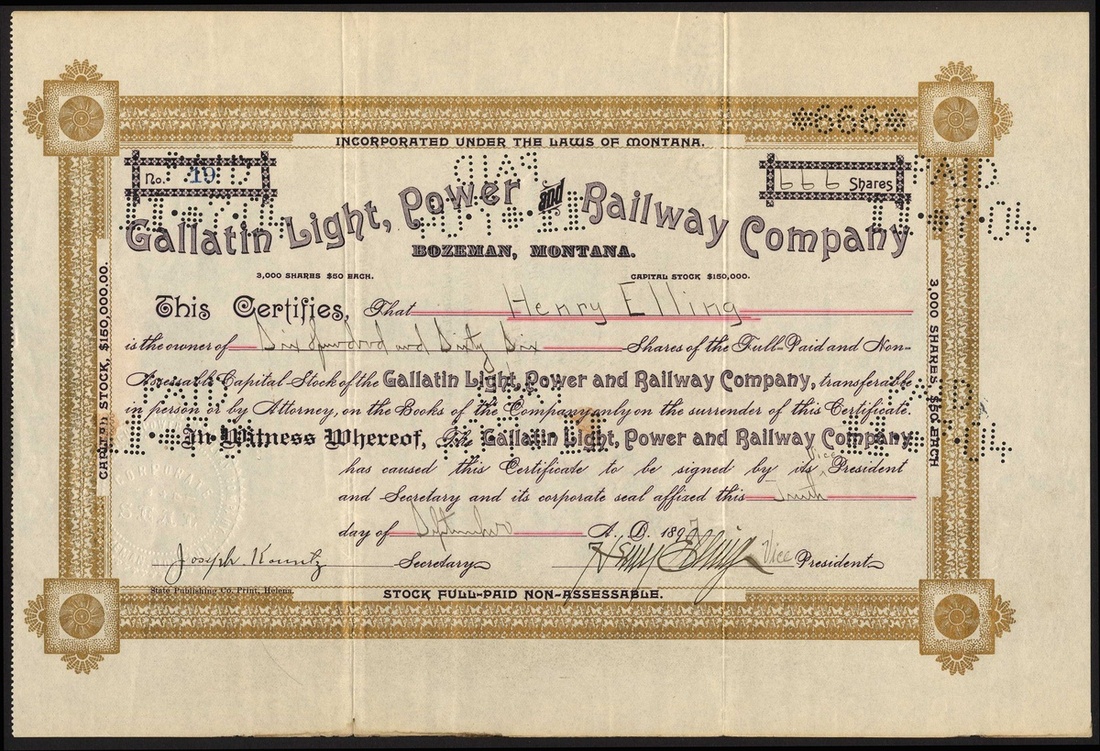 *666*
INCORPORATED UNDER THE LAWS OF MONTANA.
No. 19
666 Shares
PAID
PAID
11-17-04
Gallatin Light, Power and Railway Company
BOZEMAN, MONTANA.
3,000 SHARES $50 EACH.
CAPITAL STOCK $150,000.
This Certifies, That Henry Elling
is the owner of Six Hundred and Sixty Six Shares of the Full-Paid and Non-
Assessable Capital Stock of the Gallatin Light, Power and Railway Company, transferable
in person or by Attorney, on the Books of the Company only on the surrender of this Certificate.
In Witness Whereof, The Gallatin Light, Power and Railway Company
has caused this Certificate to be signed by its Vice President
and Secretary and its corporate seal affixed this Tenth
day of September A. D. 1897
Joseph Kountz Secretary
Henry Elling Vice President
State Publishing Co. Print, Helena.
STOCK FULL-PAID NON-ASSESSABLE.
CAPITAL STOCK, $150,000.00.
3,000 SHARES $50 EACH
PAID
PAID
CORPORATE
SEAL